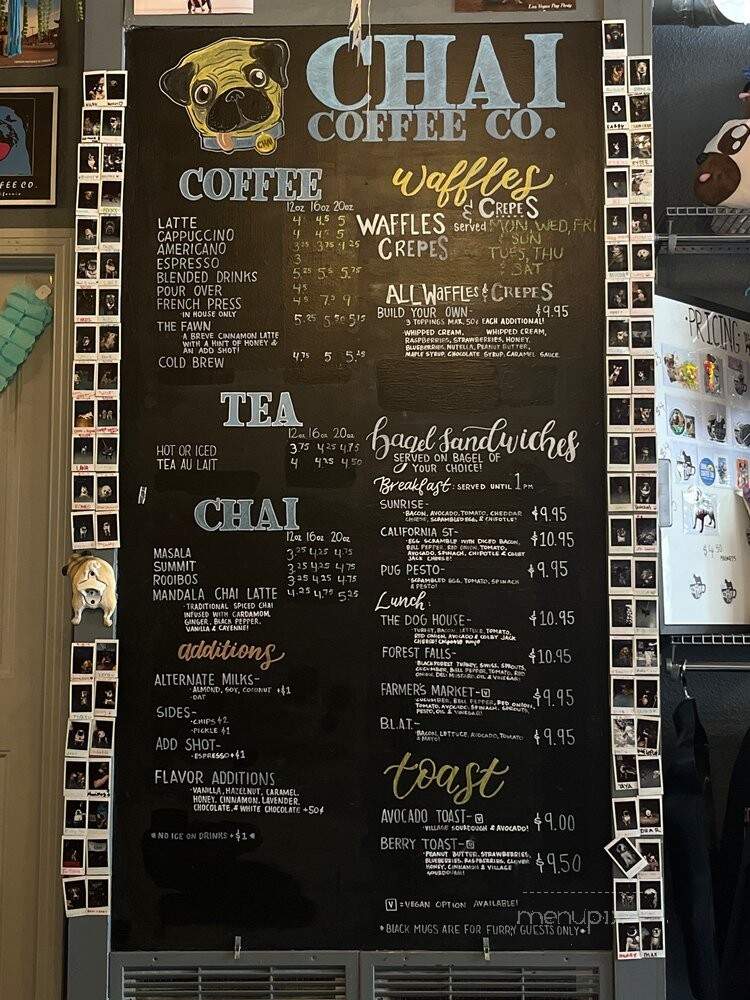 CHAI
COFFEE CO.
COFFEE
12oz 16oz 20oz
LATTE 4 4.5 5
CAPPUCCINO 4 4.5 5
AMERICANO 3.25 3.75 4.25
ESPRESSO 3
BLENDED DRINKS 5.25 5.5 5.75
POUR OVER 4.5
FRENCH PRESS 4.5 7.5 9
- IN HOUSE ONLY
THE FAWN 5.25 5.50 5.75
A BREVE CINNAMON LATTE
WITH A HINT OF HONEY &
AN ADD SHOT!
COLD BREW 4.75 5 5.25
TEA
12oz 16oz 20oz
HOT OR ICED 3.75 4.25 4.75
TEA AU LAIT 4 4.25 4.50
CHAI
12oz 16oz 20oz
MASALA 3.75 4.25 4.75
SUMMIT 3.75 4.25 4.75
ROOIBOS 3.75 4.25 4.75
MANDALA CHAI LATTE 4.25 4.75 5.25
-TRADITIONAL SPICED CHAI
INFUSED WITH CARDAMOM,
GINGER, BLACK PEPPER,
VANILLA & CAYENNE!
additions
ALTERNATE MILKS-
-ALMOND, SOY, COCONUT +$1
OAT
SIDES-
-CHIPS $2
-PICKLE $1
ADD SHOT-
-ESPRESSO +$1
FLAVOR ADDITIONS
-VANILLA, HAZELNUT, CARAMEL,
HONEY, CINNAMON, LAVENDER,
CHOCOLATE, & WHITE CHOCOLATE +50¢
*NO ICE ON DRINKS +$1*
waffles
& CREPES
WAFFLES served MON, WED, FRI
& SUN
CREPES TUES, THU
& SAT
ALL WAFFLES & CREPES
BUILD YOUR OWN- $9.95
3 TOPPINGS MAX, 50¢ EACH ADDITIONAL!
-WHIPPED CREAM, WHIPPED CREAM,
RASPBERRIES, STRAWBERRIES, HONEY,
BLUEBERRIES, NUTELLA, PEANUT BUTTER,
MAPLE SYRUP, CHOCOLATE SYRUP, CARAMEL SAUCE
bagel sandwiches
SERVED ON BAGEL OF
YOUR CHOICE!
Breakfast: SERVED UNTIL 1PM
SUNRISE- $9.95
-BACON, AVOCADO, TOMATO, CHEDDAR
CHEESE, SCRAMBLED EGG, & CHIPOTLE!
CALIFORNIA ST- $10.95
-EGG SCRAMBLE WITH DICED BACON,
BELL PEPPER, RED ONION, TOMATO,
AVOCADO, SPINACH, CHIPOTLE & COLBY
JACK CHEESE!
PUG PESTO- $9.95
-SCRAMBLED EGG, TOMATO, SPINACH
& PESTO!
Lunch:
THE DOG HOUSE- $10.95
-TURKEY, BACON, LETTUCE, TOMATO,
RED ONION, AVOCADO & COLBY JACK
CHEESE! Chipotle mayo
FOREST FALLS- $10.95
-BLACK FOREST TURKEY, SWISS, SPROUTS,
CUCUMBER, BELL PEPPER, TOMATO, RED
ONION, DELI MUSTARD, OIL & VINEGAR!
FARMER'S MARKET-V $9.95
-CUCUMBER, BELL PEPPER, RED ONION,
TOMATO, AVOCADO, SPINACH, SPROUTS,
PESTO, OIL & VINEGAR!
B.L.A.T.- $9.95
-BACON, LETTUCE, AVOCADO, TOMATO
& MAYO!
toast
AVOCADO TOAST-V $9.00
-VILLAGE SOURDOUGH & AVOCADO!
BERRY TOAST-V $9.50
-PEANUT BUTTER, STRAWBERRIES,
BLUEBERRIES, RASPBERRIES, CLOVER
HONEY, CINNAMON & VILLAGE
SOURDOUGH!
V = VEGAN OPTION AVAILABLE!
*BLACK MUGS ARE FOR FURRY GUESTS ONLY*
menupix
·PRICING
FEE CO.
$4.50